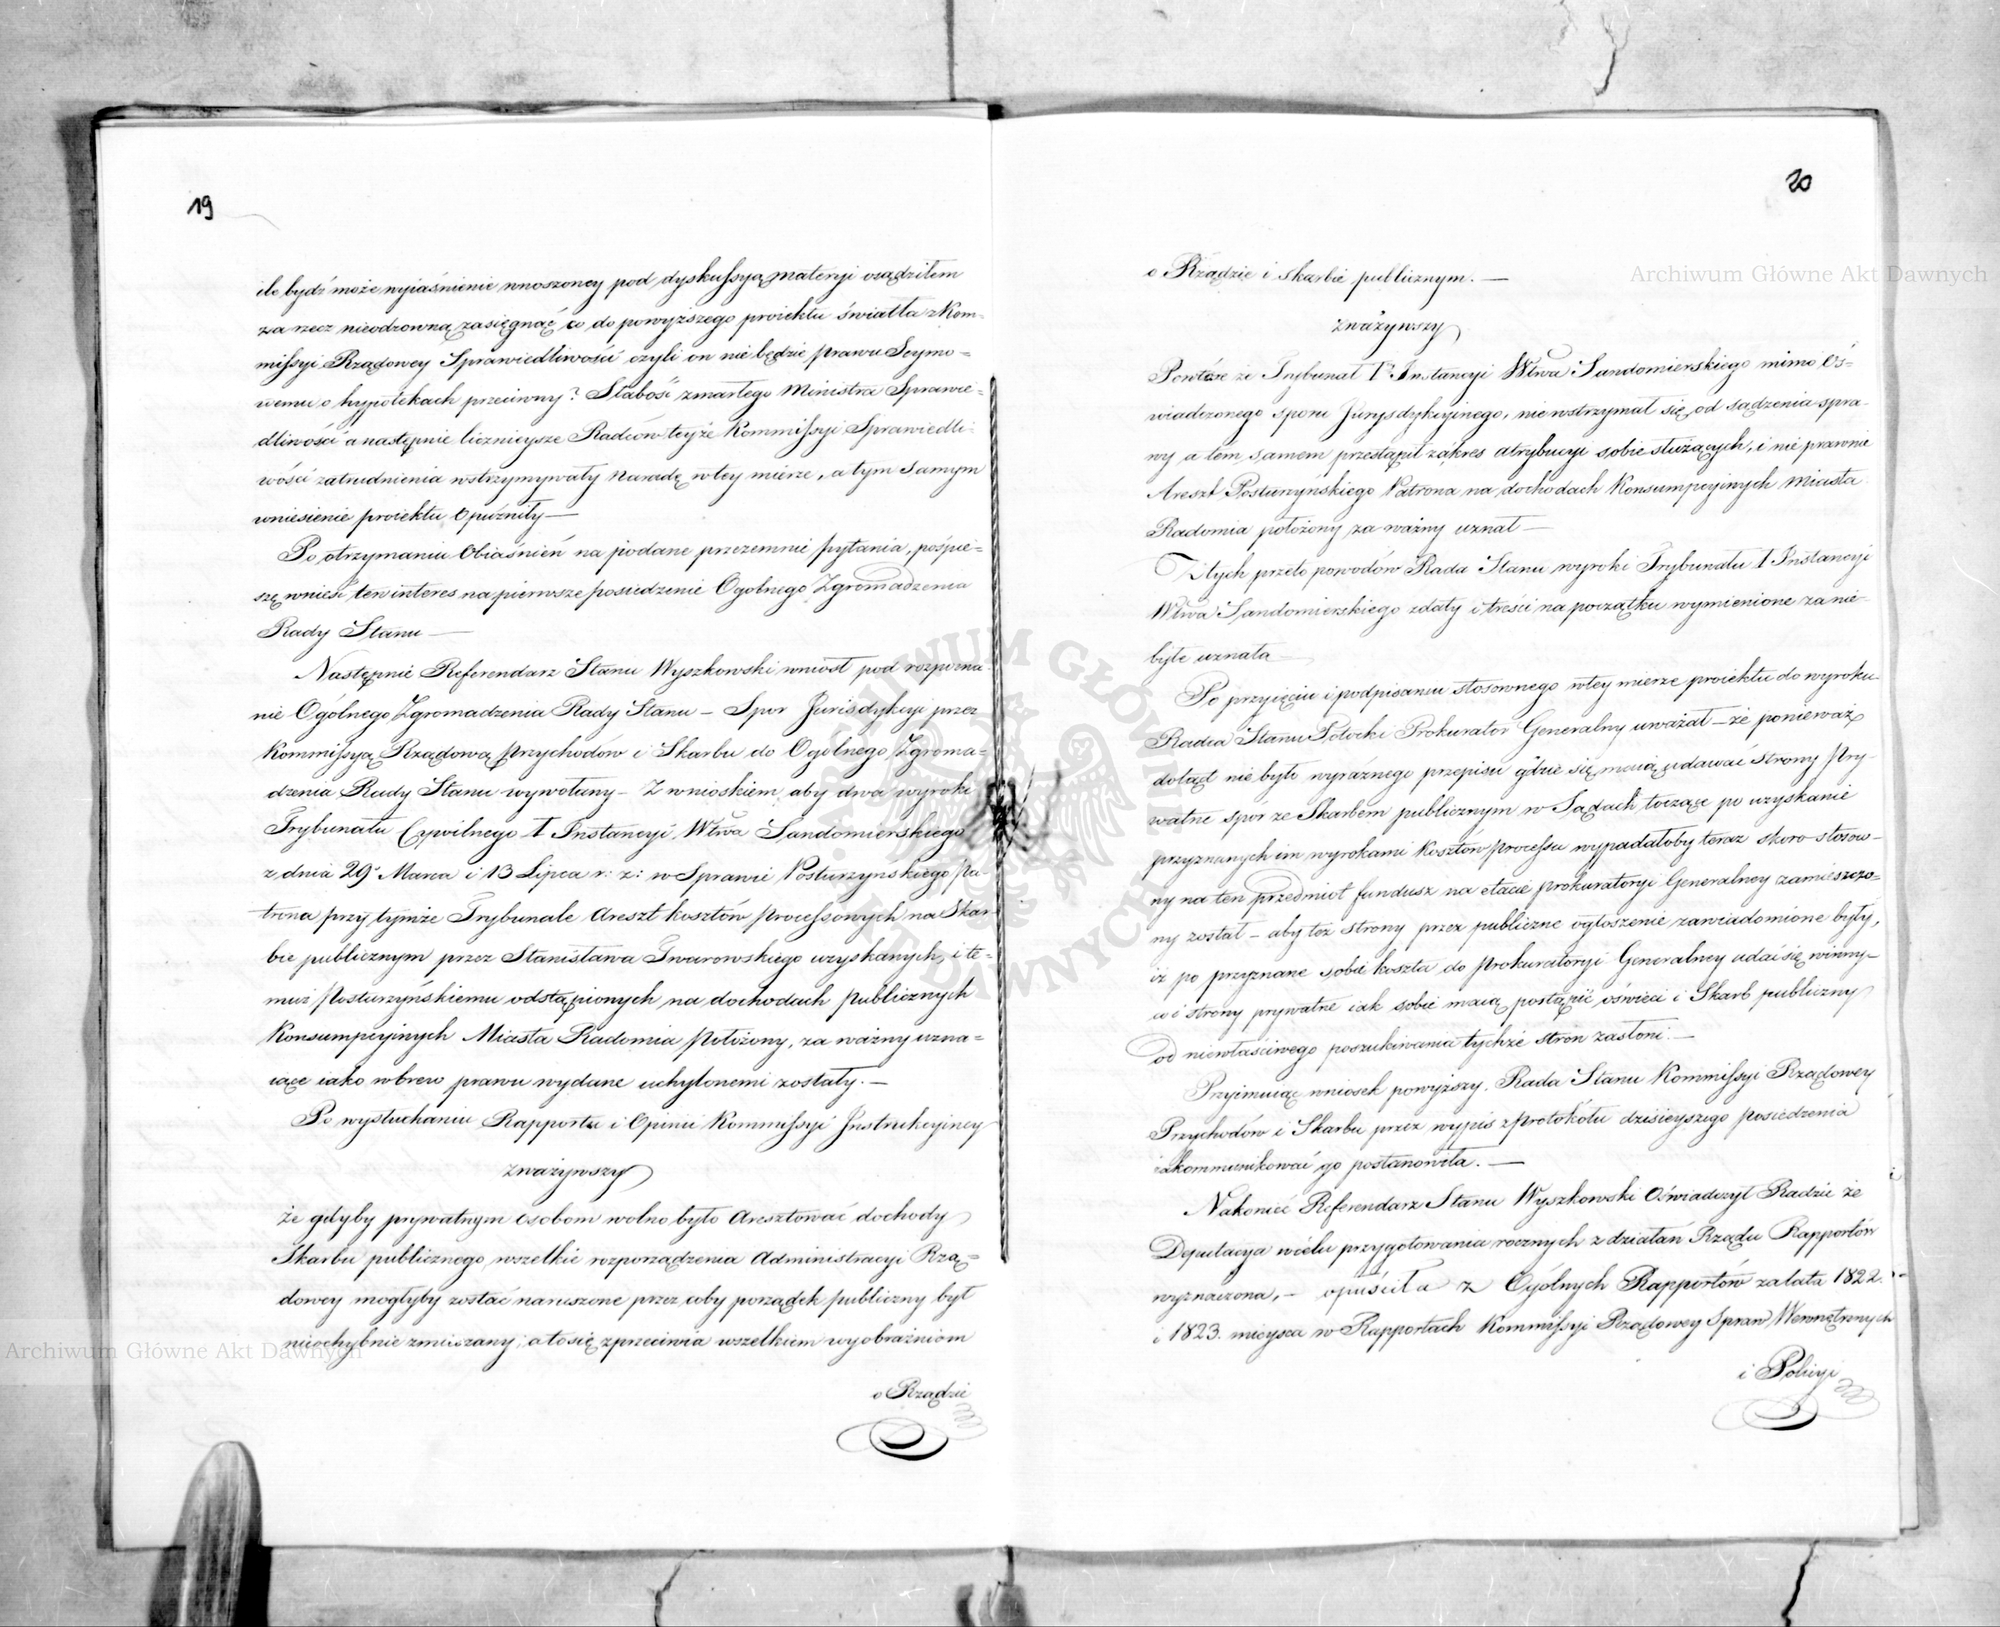 19
ile bydź może wyiaśnienie wnoszoney pod dyskussyą materyi osądziłem
za rzecz nieodzowną zasięgnąć co do powyższego proiektu światła z Kom-
missyi Rządowey Sprawiedliwości czyli on nie będzie prawu Seymo=
wemu o hypotekach przeciwny? Słabość zmarłego Ministra Sprawie-
dliwości a następnie licznieysze Radców teyże Kommissyi Sprawiedli-
wości zatrudnienia wstrzymywały naradę w tey mierze, a tym samym
wniesienie proiektu opuźniły —
Po otrzymaniu obiaśnień na podane przezemnie pytania, pośpie=
szę wnieść ten interes na pierwsze posiedzenie Ogolnego Zgromadzenia
Rady Stanu —
Następnie Referendarz Stanu Wyszkowski wniosł pod rozpozna-
nie Ogólnego Zgromadzenia Rady Stanu — Spor Jurisdykcyi przez
Kommissyą Rządową Przychodów i Skarbu do Ogólnego Zgroma=
dzenia Rady Stanu wywołany — Z wnioskiem aby dwa wyroki
Trybunału Cywilnego I Instancyi Wtwa Sandomierskiego
z dnia 29 Marca i 13 Lipca r: z: w Sprawie Posturzynskiego Pa-
trona przy tymże Trybunale Areszt kosztów processowych na Skar-
bie publicznym przez Stanisława Twarowskiego uzyskanych, i te-
muż Posturzyńskiemu odstąpionych na dochodach publicznych
Konsumpcyinych Miasta Radomia położony, za ważny uzna=
iące iako wbrew prawu wydane uchylonemi zostały. —
Po wysłuchaniu Rapportu i Opinii Kommissyi Instrukcyiney
zważywszy
że gdyby prywatnym osobom wolno było Aresztować dochody
Skarbu publicznego, wszelkie rozporządzenia Administracyi Rzą=
dowey mogłyby zostać naruszone przez coby porządek publiczny był
niechybnie zmieszany, a to się zprzeciwia wszelkiem wyobrażniom
o Rządzie
20
o Rządzie i skarbie publicznym. —
zważywszy
Powtóre że Trybunał I Instancyi Wtwa Sandomierskiego mimo Oś-
wiadczonego sporu Jurysdykcyinego, nie wstrzymał się od sądzenia spra-
wy a tem samem przestąpił zakres atrybucyi sobie służących, i nie prawnie
Areszt Posturzyńskiego Patrona na dochodach Konsumpcyinych Miasta
Radomia położony za ważny uznał —
Z tych przeto powodów Rada Stanu wyroki Trybunału I Instancyi
Wtwa Sandomierskiego z daty i treści na początku wymienione za nie-
byłe uznała —
Po przyięciu i podpisaniu stosownego w tey mierze proiektu do wyroku
Radca Stanu Potocki Prokurator Generalny uważał — że ponieważ
dotąd nie było wyraźnego przepisu gdzie się maią udawać Strony Pry-
watne spór ze Skarbem publicznym w Sądach toczące po uzyskanie
przyznanych im wyrokami Kosztów processu wypadałoby teraz skoro stosow-
ny na ten przedmiot fundusz na etacie prokuratoryi Generalney zamieszczo-
ny został — aby też strony przez publiczne ogłoszenie zawiadomione były,
iż po przyznane sobie koszta do Prokuratoryi Generalney udać się winny —
co i strony prywatne iak sobie maią postąpić oświeci i Skarb publiczny
od niewłaściwego poszukiwania tychże stron zasłoni. —
Przyimuiąc wniosek powyższy, Rada Stanu Kommissyi Rządowey
Przychodów i Skarbu przez wypis z Protokółu dzisieyszego posiedzenia
zakommunikować go postanowiła. —
Nakoniec Referendarz Stanu Wyszkowski Oświadczył Radzie że
Deputacya w celu przygotowania rocznych z działań Rządu Rapportów
wyznaczona, — opuściła z Ogólnych Rapportów za lata 1822.
i 1823. mieysca w Rapportach Kommissyi Rządowey Spraw Wewnętrznych
i Policyi
Archiwum Główne Akt Dawnych
Archiwum Główne Akt Dawnych
ARCHIWUM GŁÓWNE AKT DAWNYCH